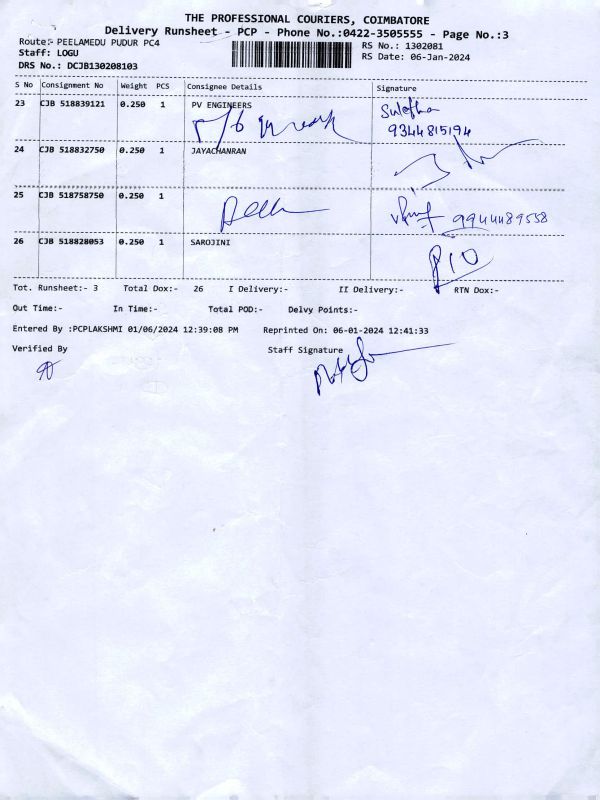 THE PROFESSIONAL COURIERS, COIMBATORE
Delivery Runsheet - PCP - Phone No.:0422-3505555 - Page No.:3
Route:- PEELAMEDU PUDUR PC4
RS No.: 1302081
Staff: LOGU
RS Date: 06-Jan-2024
DRS No.: DCJB130208103
S No Consignment No Weight PCS Consignee Details Signature
23 CJB 518839121 0.250 1 PV ENGINEERS
9344815194
24 CJB 518832750 0.250 1 JAYACHANRAN
25 CJB 518758750 0.250 1
9944489558
26 CJB 518828053 0.250 1 SAROJINI
Tot. Runsheet:- 3 Total Dox:- 26 I Delivery:- II Delivery:- RTN Dox:-
Out Time:- In Time:- Total POD:- Delvy Points:-
Entered By :PCPLAKSHMI 01/06/2024 12:39:08 PM Reprinted On: 06-01-2024 12:41:33
Verified By Staff Signature